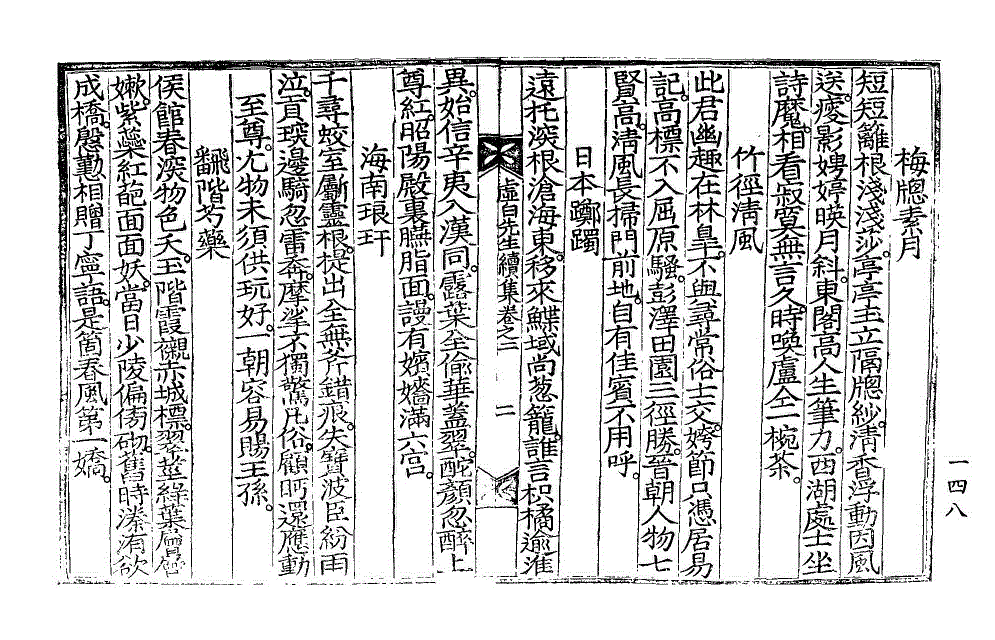 梅牕素月
短短籬根淺淺莎亭亭玉立隔牕紗淸香浮動因風
送瘦影娉婷暎月斜東閣高人生筆力西湖處士坐
詩魔相看寂寞無言久時喚盧仝一椀茶
竹徑淸風
此君幽趣在林皐不與尋常俗士交姱節只憑居易
記高標不入屈原騷彭澤田園三徑勝晉朝人物七
賢高淸風長掃門前地自有佳賓不用呼
日本躑躅
遠托深根滄海東移來鰈域尙葱籠誰言枳橘逾淮
虛白先生續集卷之二
二
異始信辛夷入漢同露葉全偷華蓋翠酡顏忽醉上
尊紅昭陽殿裏臙脂面謾有嬪嬙滿六宮
海南琅玕
千尋蛟室斸靈根提出全無斧錯痕失寶波臣紛雨
泣貢琛邊騎忽雷奔摩挲不獨驚凡俗顧眄還應動
至尊尤物未須供玩好一朝容易賜王孫
飜階芍藥
侯館春深物色夭玉階霞襯赤城標翠莖綠葉層層
嫩紫蘂紅葩面面妖當日少陵偏傍砌舊時溱洧欲
成橋慇懃相贈丁寧語是箇春風第一嬌
一四八